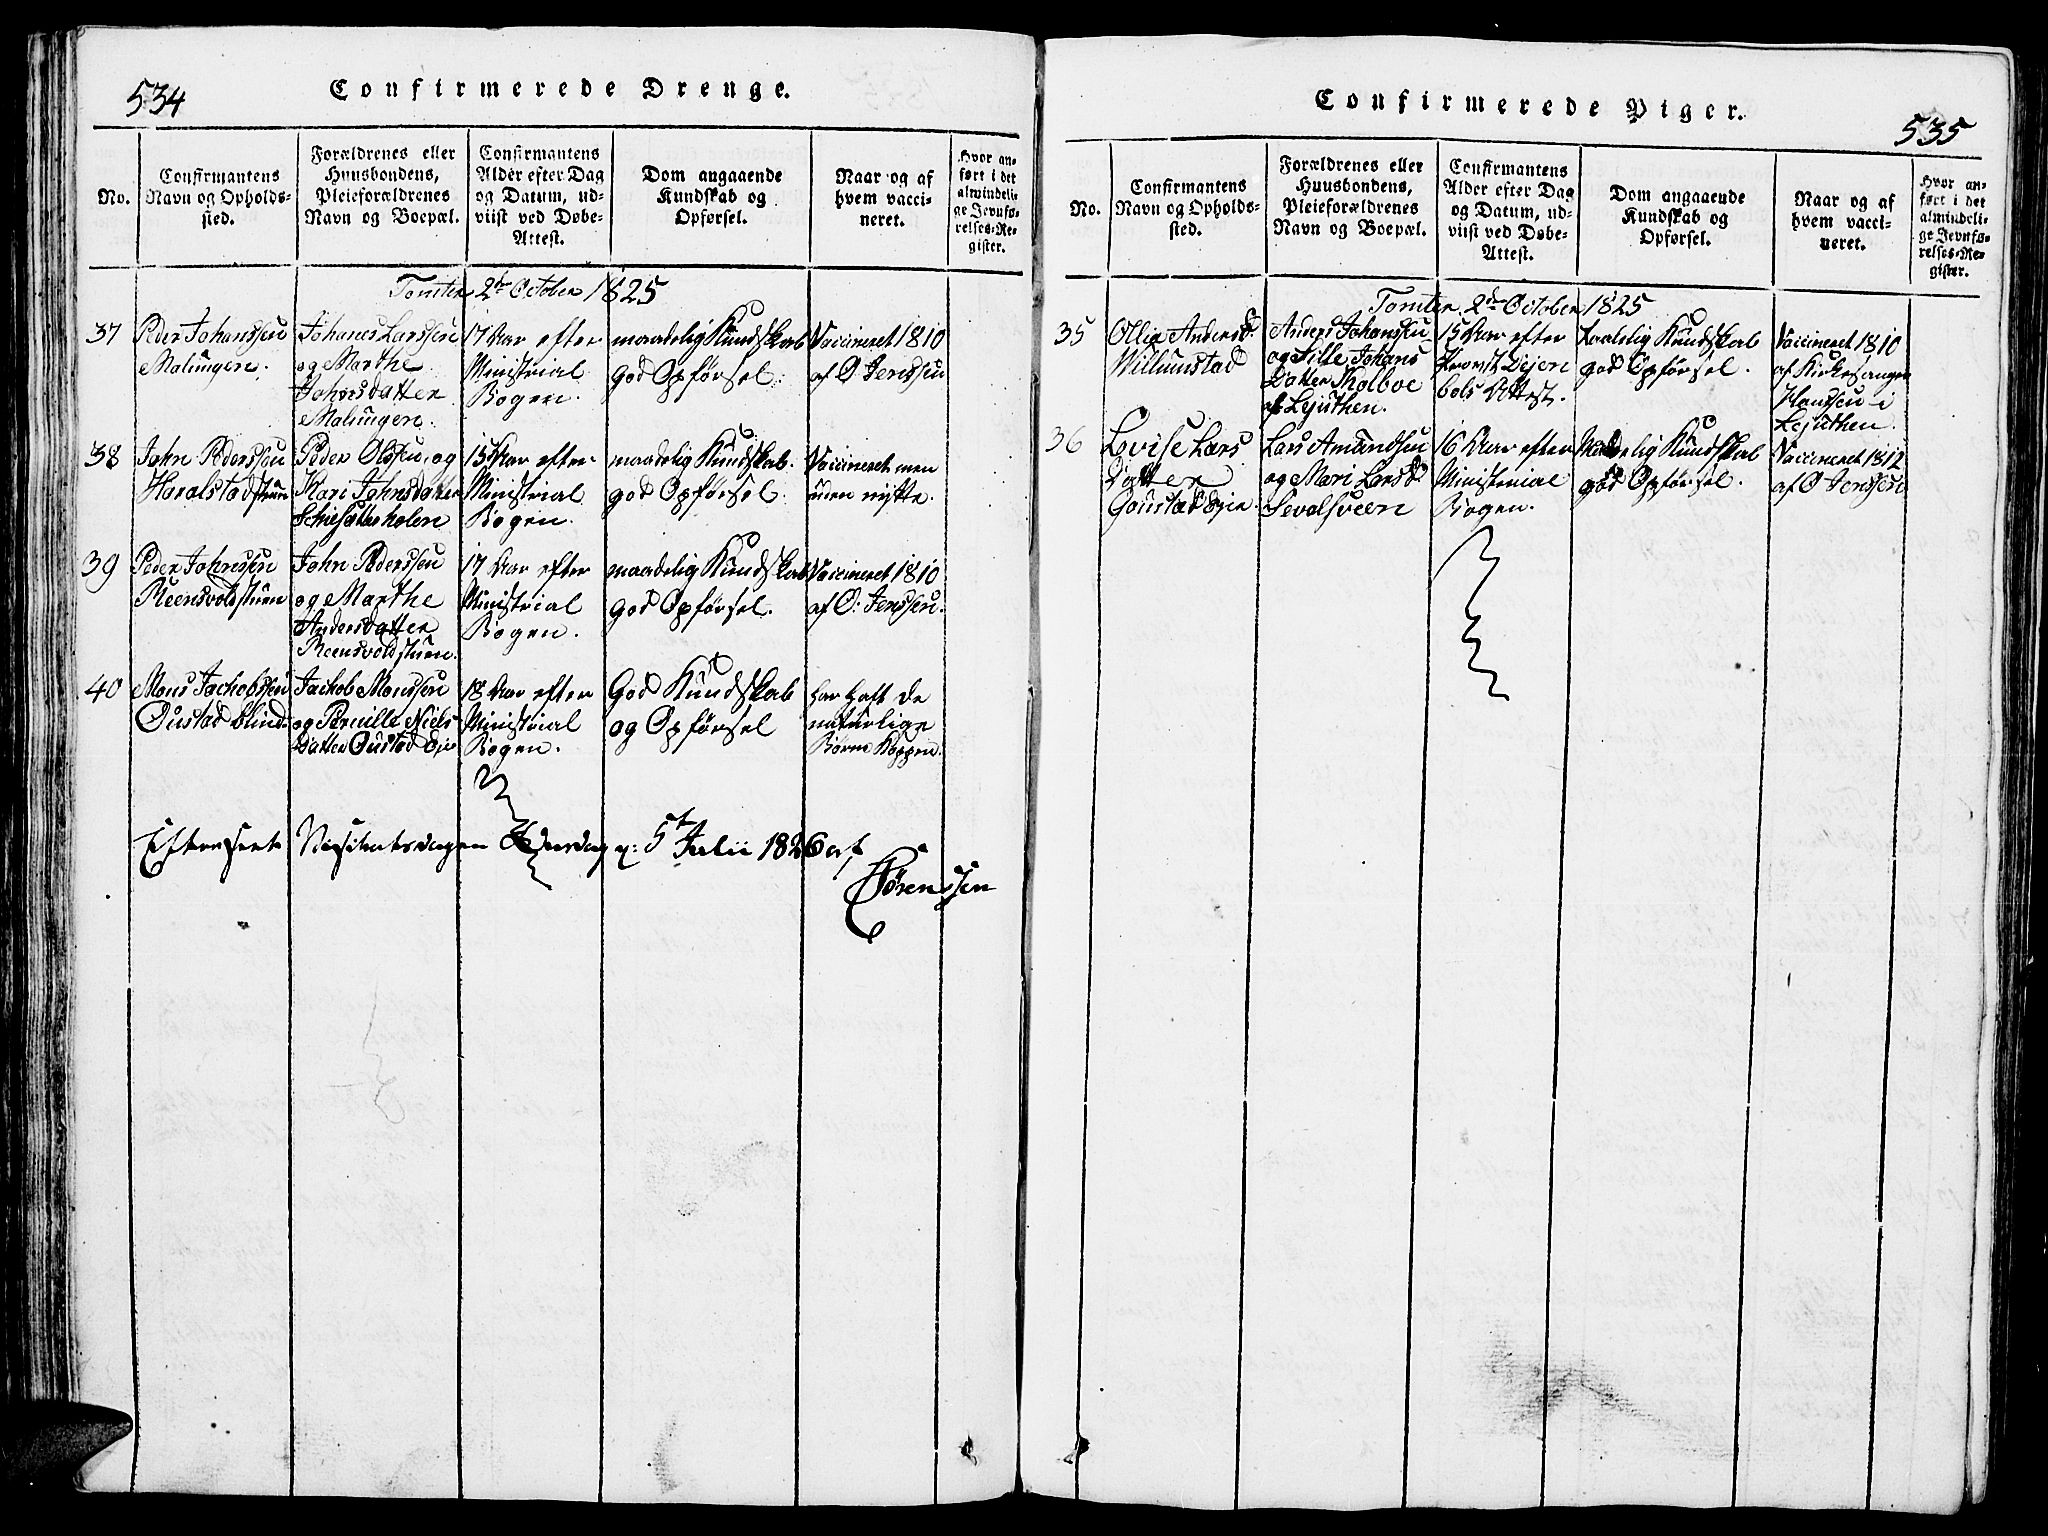 534
Confirmerede Drenge.
No.
Confirmantens
Navn og Opholds-
sted.
Forældrenes eller
Huusbondens,
Pleieforældrenes
Navn og Boepæl.
Confirmantens
Alder efter Dag
og Datum, ud-
viist ved Døbe-
Attest.
Dom angaaende
Kundskab og
Opførsel.
Naar og af
hvem vacci-
neret.
Hvor an-
ført i det
almindeli-
ge Jevnfø-
relses-Re-
gister.
Tomter 2de October 1825
37
Peder Johanssen
Malungen.
Johanes Larssen
og Marthe
Johnsdatter
Malungen.
17 Aar efter
Ministrial
Bogen.
maadelig Kundskab
god Opførsel.
Vaccineret 1810
af O Jenssen
38
John Pederssen
Haralstadstuen
Peder Olssen, og
Kari Johnsdatter
15 Aar efter
Ministrial
Bogen.
maadelig Kundskab.
god Opførsel.
Vaccineret men
uden nytte.
39
Peder Johnssen
Reensvoldstuen
John Pederssen
og Marthe
Andersdatter
Reensvoldstuen.
17 Aar efter
Ministrial
Bogen.
maadelig Kundskab
god Opførsel.
Vaccineret 1810
af O: Jenssen.
40
Mons Jachobssen
Oustad blind
Jachob Monssen
og Pernille Niels
Datter Oustad Eje
18 Aar efter
Ministrial
Bogen.
God Kundskab
og Opførsel
har haft de
naturlige
Børne Kopper.
Efterseet Visitatsdagen Onsdag d: 5t Julii 1826 af
Sørenssen
535
Confirmerede Piger.
No.
Confirmantens
Navn og Opholds-
sted.
Forældrenes eller
Huusbondens,
Pleieforældrenes
Navn og Boepæl.
Confirmantens
Alder efter Dag
og Datum, ud-
viist ved Døbe-
Attest.
Dom angaaende
Kundskab og
Opførsel.
Naar og af
hvem vacci-
neret.
Hvor an-
ført i det
almindeli-
ge Jevnfø-
relses-Re-
gister.
Tomter 2de October 1825
35
Ollia Andersd:
Willumstad
Anders Johanssen
og Sille Johans
Datter Kolboe
af Lejuthen.
15 Aar efter
Provst Dejen
bols Attest.
Maadelig Kundskab
god Opførsel.
Vaccineret 1810
af Kirkesanger
Hanssen i
Lejuthen.
36
Lovise Lars
Datter
Gaustad Eje.
Lars Amundsen
og Mari Larsd
Sevalsveen
16 Aar efter
Ministerial
Bogen.
Maadelig Kundskab
god Opførsel.
Vaccineret 1812
af O Jenssen